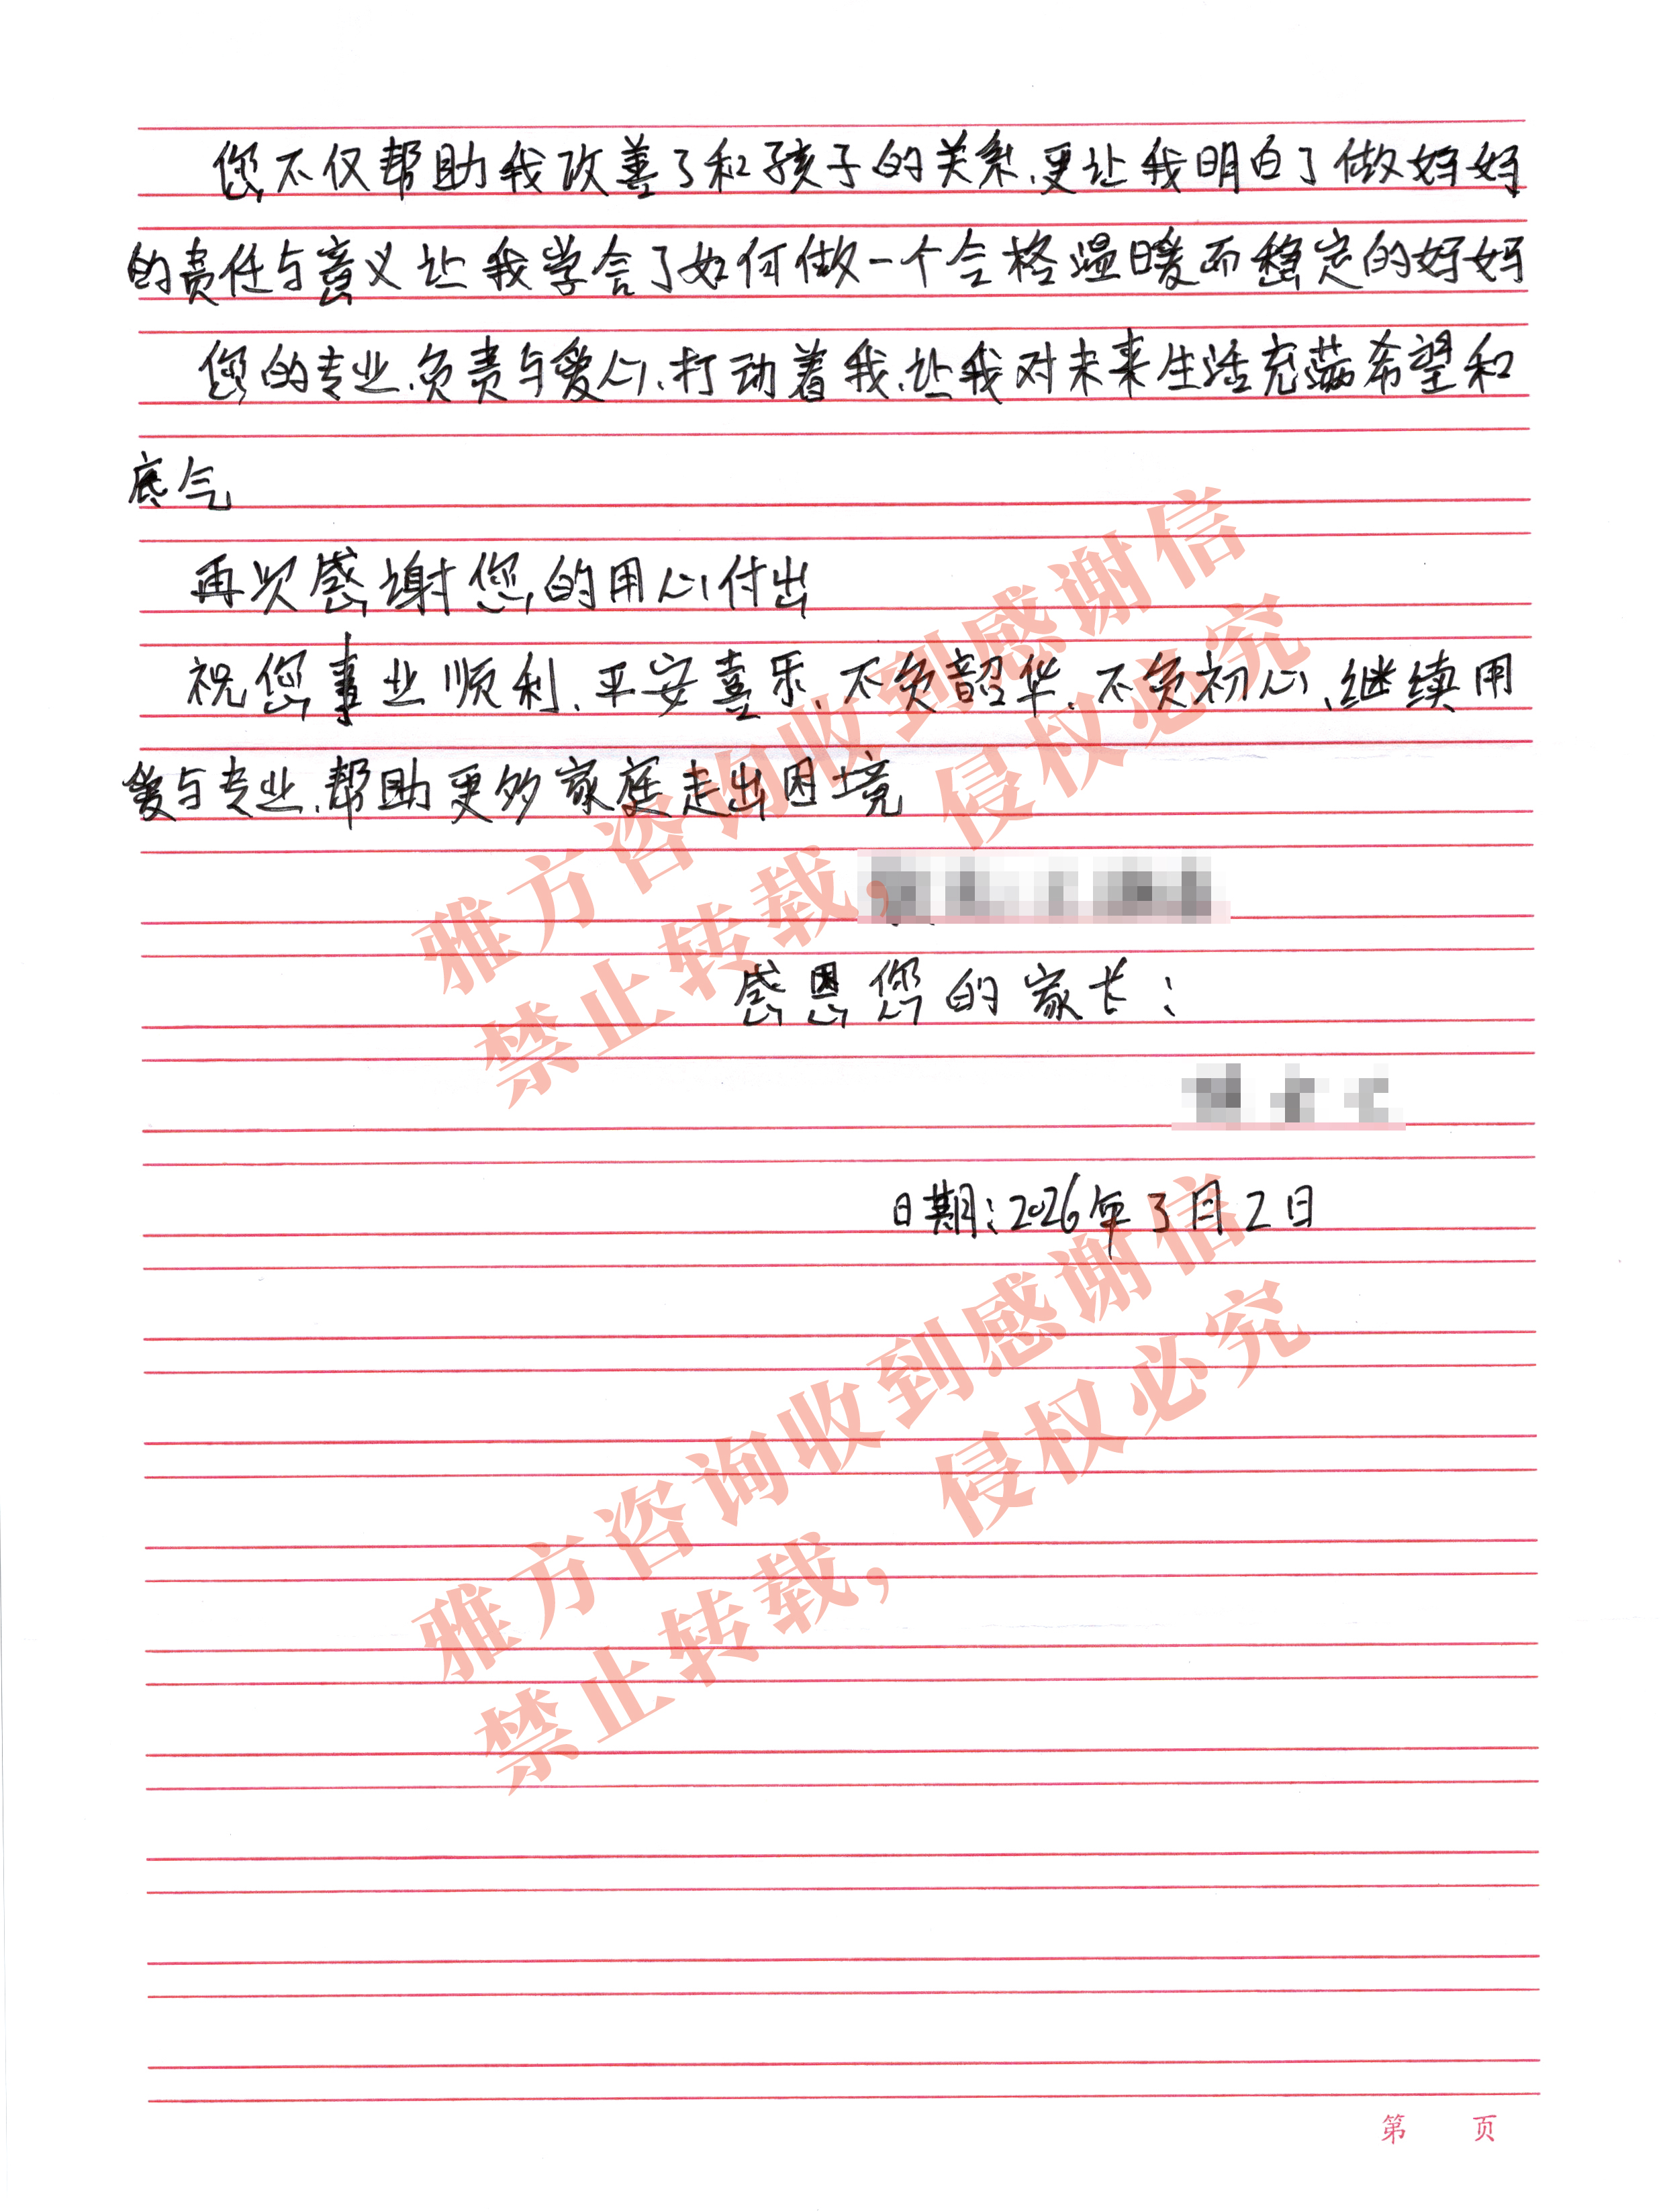 您不仅帮助我改善了和孩子的关系、更让我明白了做妈妈
的责任与意义让我学会了如何做一个合格温暖而稳定的妈妈
您的专业、负责与爱心、打动着我、让我对未来生活充满希望和
底气
再次感谢您的用心付出
祝您事业顺利、平安喜乐、不负韶华、不负初心、继续用
爱与专业、帮助更多家庭走出困境
感恩您的家长：
日期：2026年3月2日
雅方咨询收到感谢信
禁止转载，侵权必究
雅方咨询收到感谢信
禁止转载，侵权必究
第 页